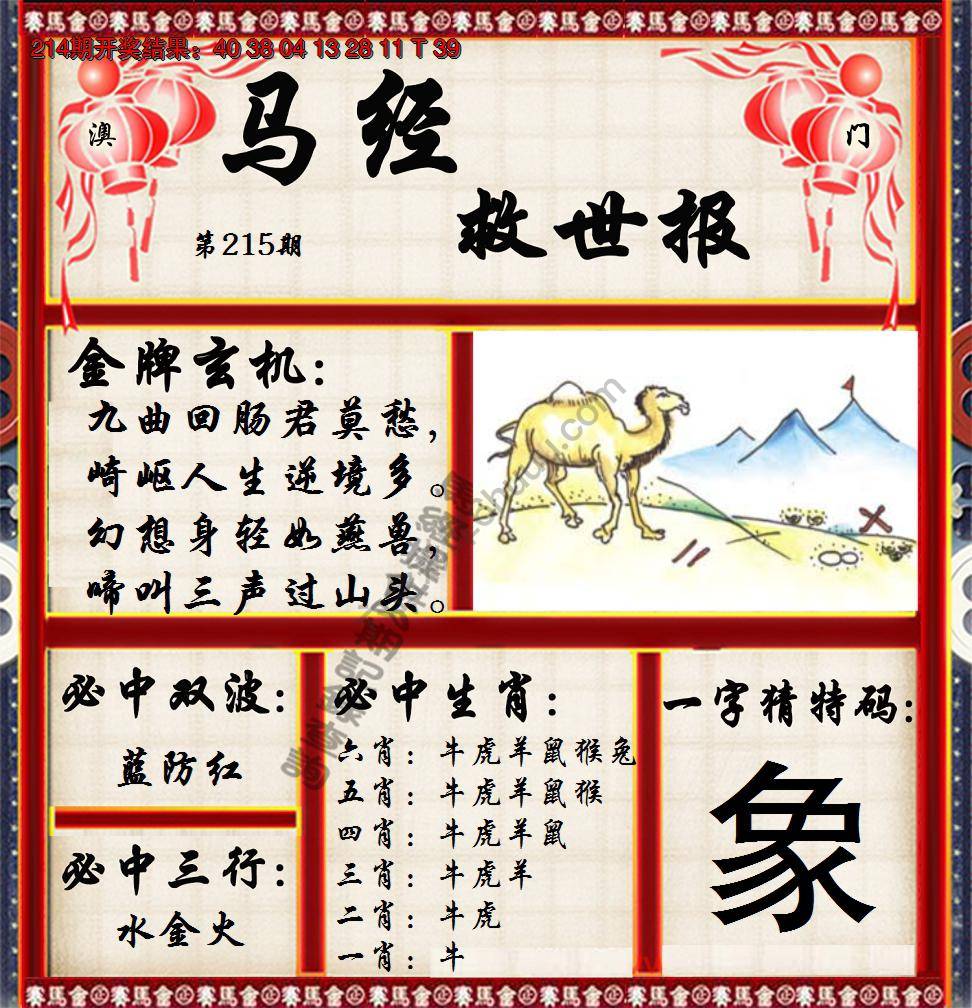 赛馬會
214期开奖结果：40 38 04 13 28 11 T 39
澳 门
马经
救世报
第215期
金牌玄机：
九曲回肠君莫愁，
崎岖人生逆境多。
幻想身轻如燕兽，
啼叫三声过山头。
必中双波：
蓝防红
必中三行：
水金火
必中生肖：
六肖：牛虎羊鼠猴兔
五肖：牛虎羊鼠猴
四肖：牛虎羊鼠
三肖：牛虎羊
二肖：牛虎
一肖：牛
一字猜特码：
象